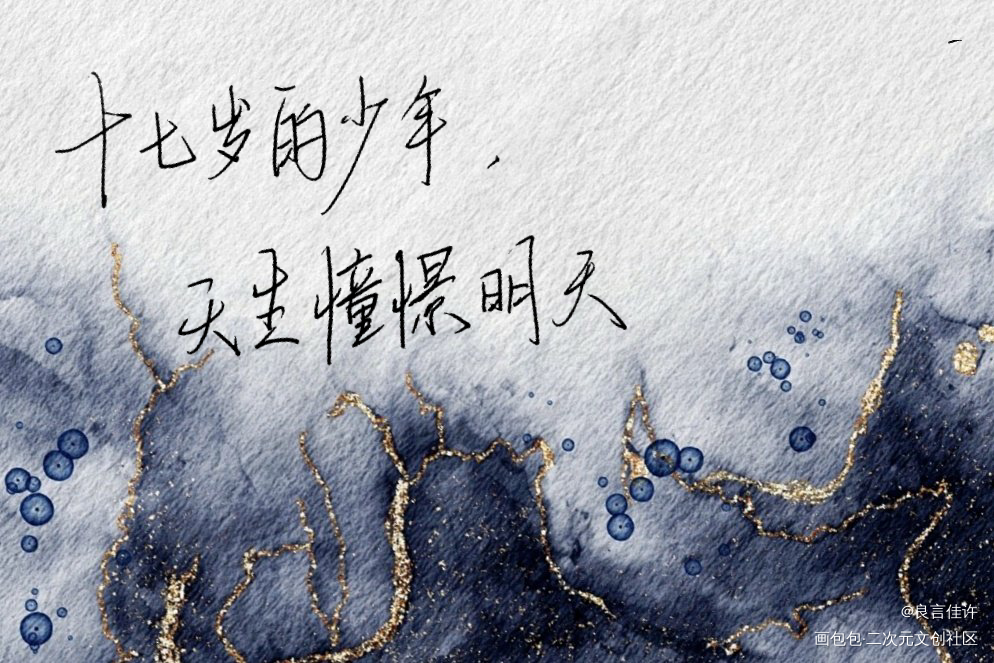 十七岁的少年，
天生憧憬明天
@良言佳许
画包包·二次元文创社区